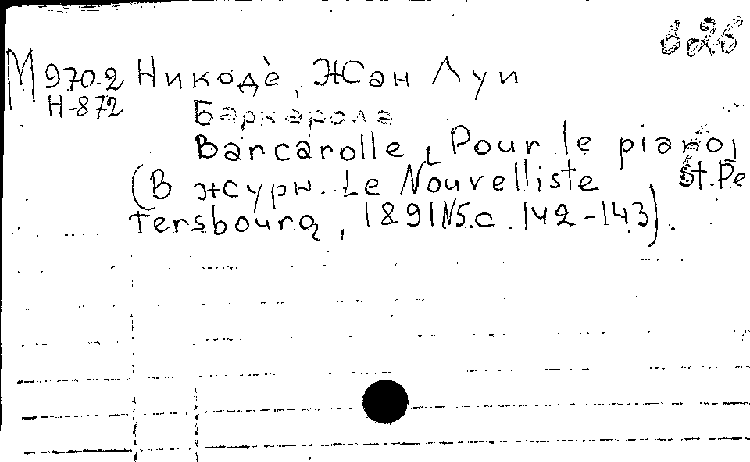 в 26
М 970.2 Никодѐ, Жан Луи
Н-872
Баркарола
Barcarolle [Pour le piano]
(В журн. Le Nouvelliste, St. Pe
tersbourg, 1891 N5. с. 142-143).